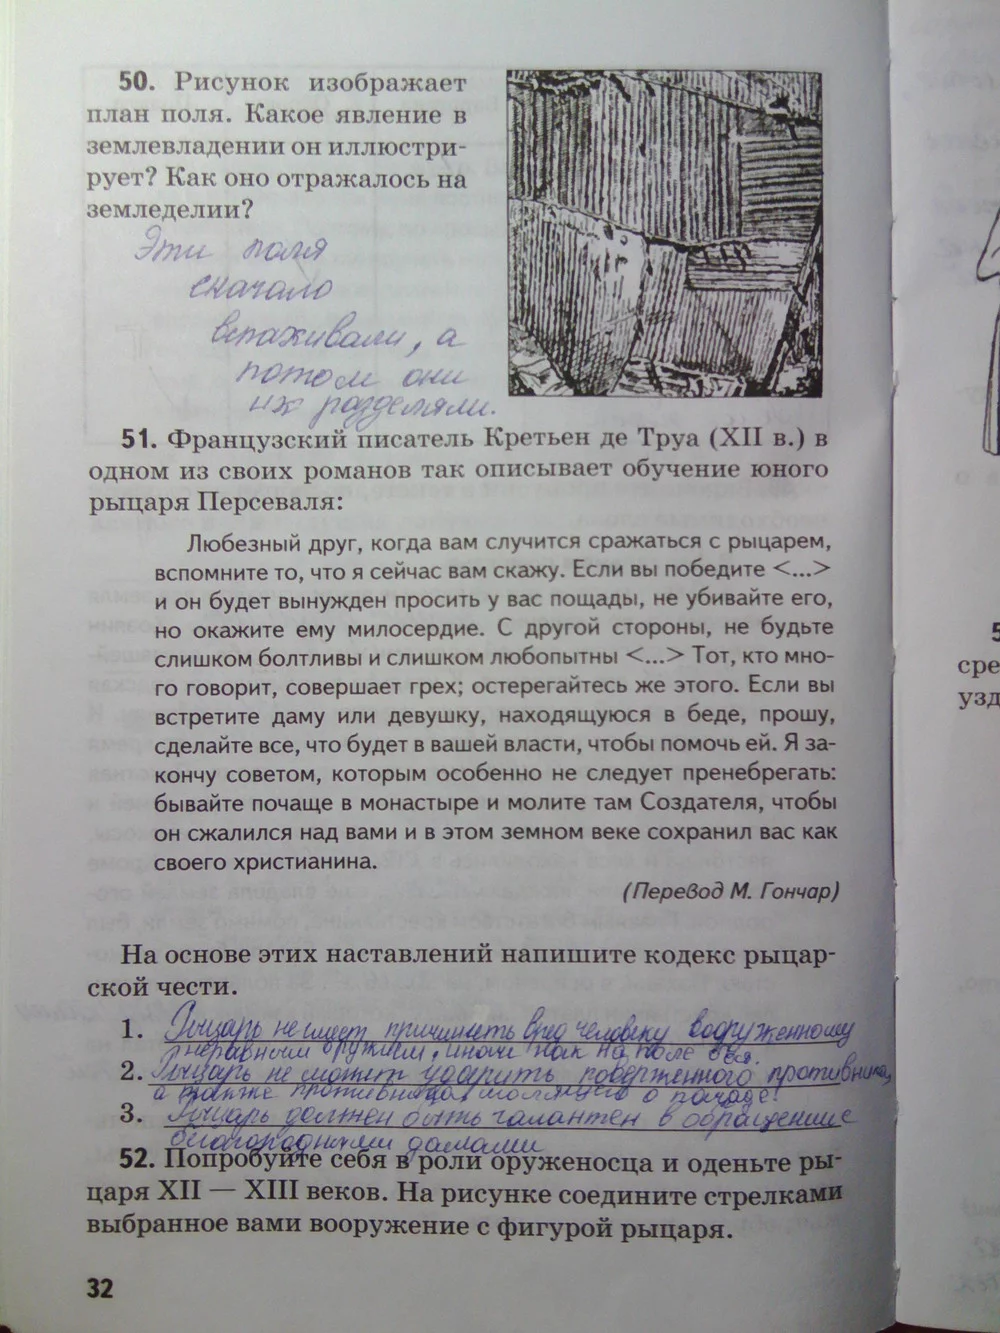 50. Рисунок изображает
план поля. Какое явление в
землевладении он иллюстри-
рует? Как оно отражалось на
земледелии?
Эти поля
сначало
вспахивали, а
потом они
их разделяли.
51. Французский писатель Кретьен де Труа (XII в.) в
одном из своих романов так описывает обучение юного
рыцаря Персеваля:
Любезный друг, когда вам случится сражаться с рыцарем,
вспомните то, что я сейчас вам скажу. Если вы победите <...>
и он будет вынужден просить у вас пощады, не убивайте его,
но окажите ему милосердие. С другой стороны, не будьте
слишком болтливы и слишком любопытны <...> Тот, кто мно-
го говорит, совершает грех; остерегайтесь же этого. Если вы
встретите даму или девушку, находящуюся в беде, прошу,
сделайте все, что будет в вашей власти, чтобы помочь ей. Я за-
кончу советом, которым особенно не следует пренебрегать:
бывайте почаще в монастыре и молите там Создателя, чтобы
он сжалился над вами и в этом земном веке сохранил вас как
своего христианина.
(Перевод М. Гончар)
На основе этих наставлений напишите кодекс рыцар-
ской чести.
1. Рыцарь не может причинить вред человеку вооруженному
неравным оружием, иначе как на поле боя.
2. Рыцарь не может ударить поверженного противника,
а также противника молящего о пощаде.
3. Рыцарь должен быть галантен в обращение
благородными дамами
52. Попробуйте себя в роли оруженосца и оденьте ры-
царя XII — XIII веков. На рисунке соедините стрелками
выбранное вами вооружение с фигурой рыцаря.
32
сре
узд